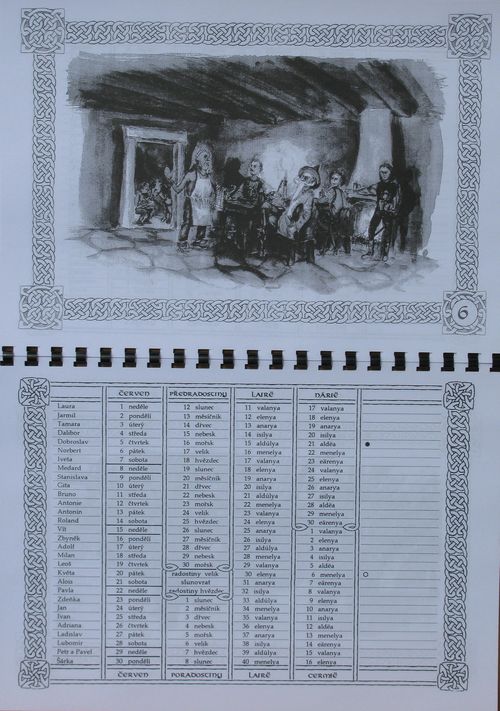 6
ČERVEN PŘEDRADOSTINY LAIRË NÁRIË
Laura 1 neděle 12 slunec 11 valanya 17 valanya
Jarmil 2 pondělí 13 měsíčník 12 elenya 18 elenya
Tamara 3 úterý 14 dřvec 13 anarya 19 anarya
Dalibor 4 středa 15 nebesk 14 isilya 20 isilya
Dobroslav 5 čtvrtek 16 mořsk 15 aldúlya 21 aldëa
Norbert 6 pátek 17 velik 16 menelya 22 menelya
Iveta 7 sobota 18 hvězdec 17 valanya 23 eärenya
Medard 8 neděle 19 slunec 18 elenya 24 valanya
Stanislava 9 pondělí 20 měsíčník 19 anarya 25 elenya
Gita 10 úterý 21 dřvec 20 isilya 26 anarya
Bruno 11 středa 22 nebesk 21 aldúlya 27 isilya
Antonie 12 čtvrtek 23 mořsk 22 menelya 28 aldëa
Antonín 13 pátek 24 velik 23 valanya 29 menelya
Roland 14 sobota 25 hvězdec 24 elenya 30 eärenya
Vít 15 neděle 26 slunec 25 anarya 1 valanya
Zbyněk 16 pondělí 27 měsíčník 26 isilya 2 elenya
Adolf 17 úterý 28 dřvec 27 aldúlya 3 anarya
Milan 18 středa 29 nebesk 28 menelya 4 isilya
Leoš 19 čtvrtek 30 mořsk 29 valanya 5 aldëa
Květa 20 pátek radostiny velik 30 elenya 6 menelya
Alois 21 sobota slunovrat 31 anarya 7 eärenya
Pavla 22 neděle radostiny hvězdec 32 isilya 8 valanya
Zdeňka 23 pondělí 1 slunec 33 aldúlya 9 elenya
Jan 24 úterý 2 měsíčník 34 menelya 10 anarya
Ivan 25 středa 3 dřvec 35 valanya 11 isilya
Adriana 26 čtvrtek 4 nebesk 36 elenya 12 aldëa
Ladislav 27 pátek 5 mořsk 37 anarya 13 menelya
Lubomír 28 sobota 6 velik 38 isilya 14 eärenya
Petr a Pavel 29 neděle 7 hvězdec 39 aldúlya 15 valanya
Šárka 30 pondělí 8 slunec 40 menelya 16 elenya
ČERVEN PORADOSTINY LAIRË CERMIË